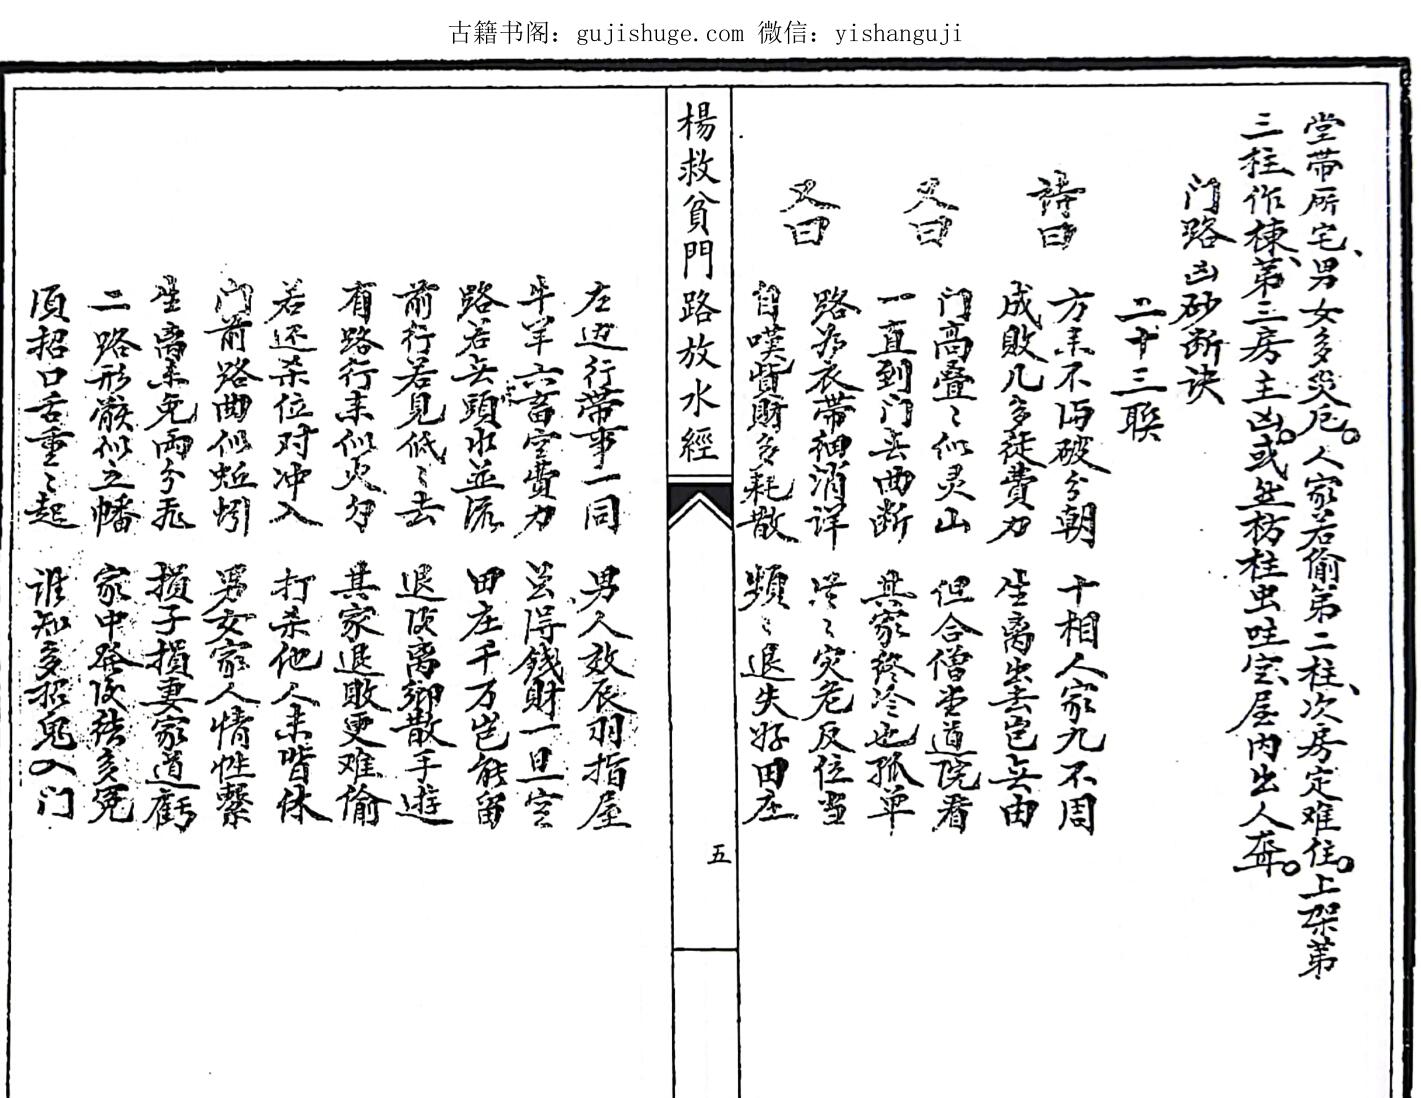 古籍书阁：gujishuge.com 微信：yishanguji
堂带所宅、男女多災厄。人家若偷第二柱、次房定难住。上架第
三柱作棟、第三房主凶。或然枋柱虫吐、屋内出人聋。
门路凶砂断诀
二十三联
詩曰
方来不偶破分朝 十相人家九不周
成敗几多徒費力 生离出去岂无由
又曰
门高叠〻似灵山 但合僧堂道院看
一直到门无曲断 其家終冷也孤单
又曰
路如衣带細消详 灾危反位当
自嘆貲財多耗散 頻〻退失好田庄
楊救貧門路放水經
五
左边行带事一同 男人效 羽指屋
牛羊六畜空費力 錢財一旦空
路若无頭水並流 田庄千万岂能留
前行若見低〻去 退败离鄉散手遊
有路行来似火 其家退敗更难偷
若还杀位对冲入 打杀他人来皆休
门前路曲似蚯蚓 男女家人情性緊
生离未免兩分飛 損子損妻家道虧
二路形 似之幡 家中 多冤
須招口舌重〻起 谁知多招鬼入门